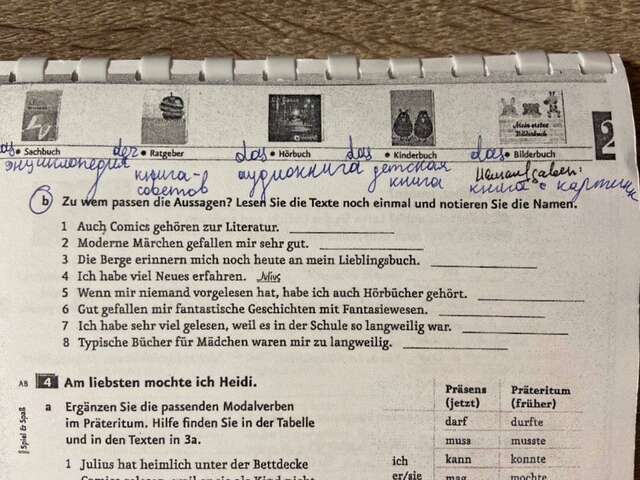 Mein erstes
Bilderbuch
2
das der das das das
• Sachbuch • Ratgeber • Hörbuch • Kinderbuch • Bilderbuch
энциклопедия книга- аудиокнига детская
советов книга книга с картинк
b Zu wem passen die Aussagen? Lesen Sie die Texte noch einmal und notieren Sie die Namen.
1 Auch Comics gehören zur Literatur.
2 Moderne Märchen gefallen mir sehr gut.
3 Die Berge erinnern mich noch heute an mein Lieblingsbuch.
4 Ich habe viel Neues erfahren. Julius
5 Wenn mir niemand vorgelesen hat, habe ich auch Hörbücher gehört.
6 Gut gefallen mir fantastische Geschichten mit Fantasiewesen.
7 Ich habe sehr viel gelesen, weil es in der Schule so langweilig war.
8 Typische Bücher für Mädchen waren mir zu langweilig.
AB 4 Am liebsten mochte ich Heidi.
Spiel & Spaß
a Ergänzen Sie die passenden Modalverben
im Präteritum. Hilfe finden Sie in der Tabelle
und in den Texten in 3a.
1 Julius hat heimlich unter der Bettdecke
Comics gelesen, weil er sie als Kind nicht
Präsens Präteritum
(jetzt) (früher)
darf durfte
muss musste
ich kann konnte
er/sie mag mochte